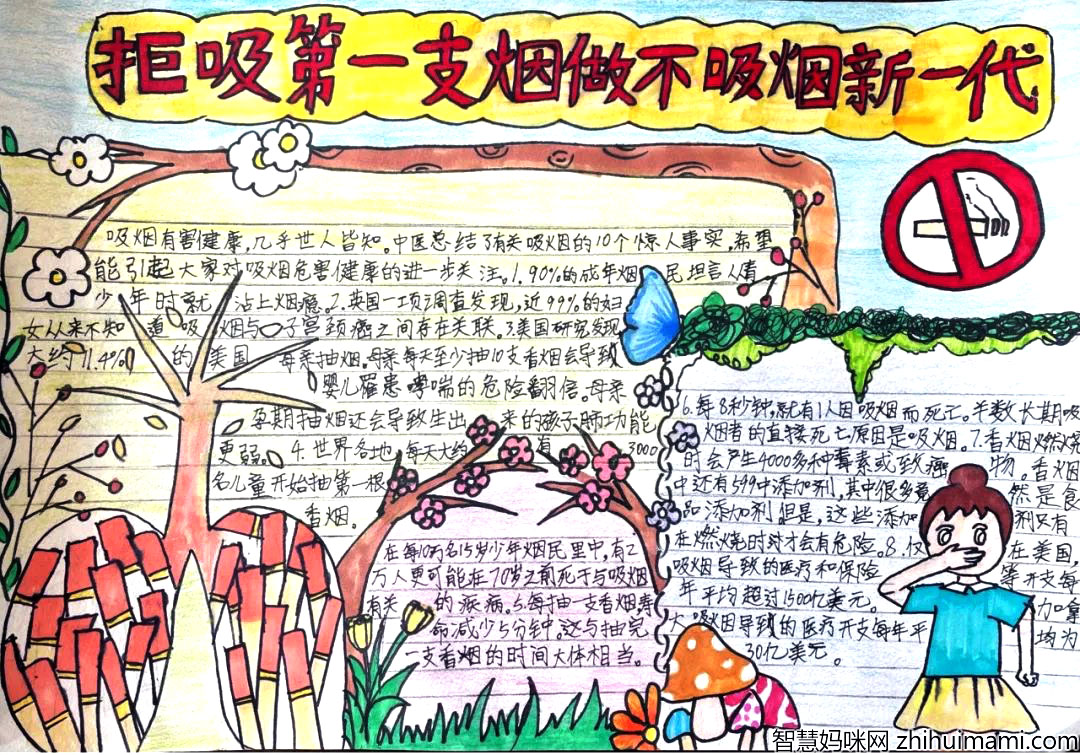 拒吸第一支烟做不吸烟新一代
吸烟有害健康,几乎世人皆知。中医总结了有关吸烟的10个惊人事实,希望
能引起大家对吸烟危害健康的进一步关注。1.90%的成年烟民坦言从青
少年时就沾上烟瘾。2.英国一项调查发现,近99%的妇
女从来不知道吸烟与子宫颈癌之间存在关联。3.美国研究发现
大约11.4%的美国母亲抽烟.母亲每天至少抽10支香烟会导致
婴儿罹患哮喘的危险翻倍。母亲
孕期抽烟还会导致生出来的孩子肺功能
更弱。4.世界各地,每天大约有3000
名儿童开始抽第一根
香烟。
在每10万名15岁少年烟民里中,有2
万人更可能在70岁之前死于与吸烟
有关的疾病。5.每抽一支香烟寿
命减少5分钟。这与抽完
一支香烟的时间大体相当。
6.每8秒钟,就有1人因吸烟而死亡。半数长期吸
烟者的直接死亡原因是吸烟。7.香烟燃烧
时会产生4000多种毒素或致癌物。香烟
中还有599中添加剂,其中很多竟然是食
品添加剂.但是,这些添加剂只有
在燃烧时时才会有危险。8.仅在美国,
吸烟导致的医疗和保险等开支每
年平均超过1500亿美元。加拿
大吸烟导致的医疗开支每年平均为
30亿美元。
智慧妈咪网 zhihuimami.com